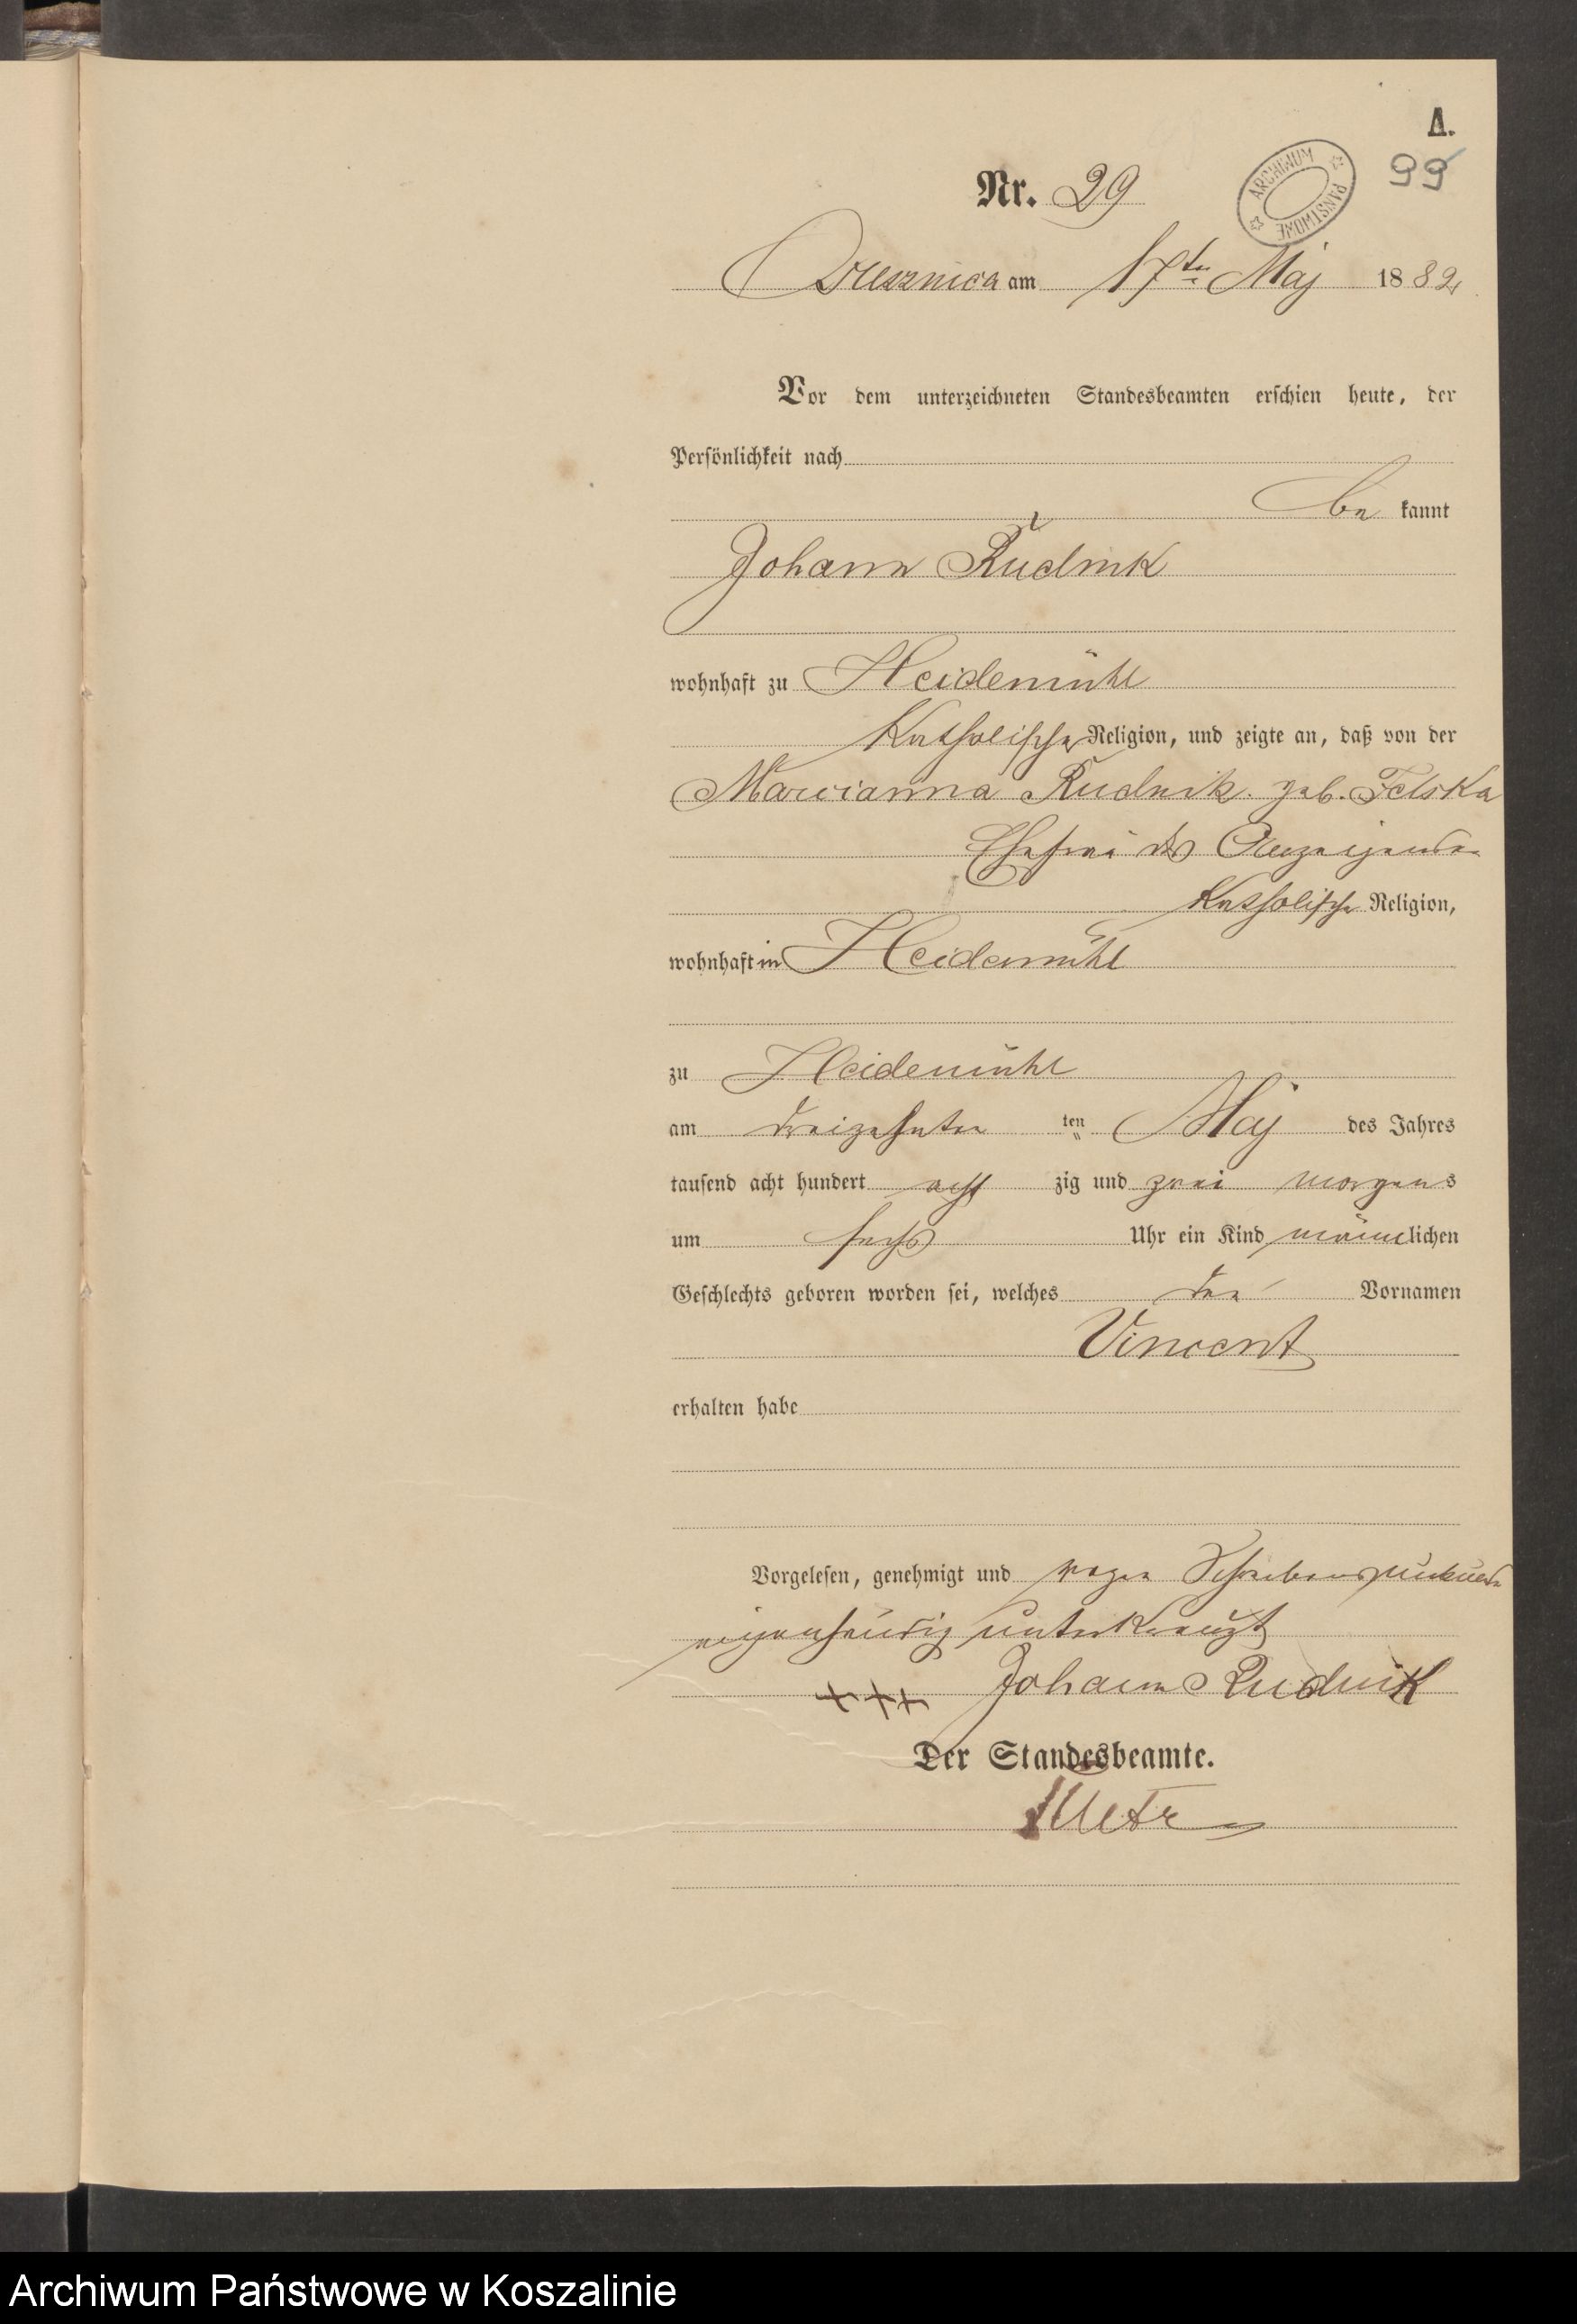 A.
99
Nr. 29
ARCHIWUM PAŃSTWOWE
am 17ten Maj 1882
Vor dem unterzeichneten Standesbeamten erschien heute, der
Persönlichkeit nach
be kannt
Johann Rudnik
wohnhaft zu Heidemühl
Katholischer Religion, und zeigte an, daß von der
Marcianna Rudnik geb. Felska
Ehefrau des Anzeigenden
Katholischer Religion,
wohnhaft in Heidemühl
zu Heidemühl
am dreizehnten ten Maj des Jahres
tausend acht hundert acht zig und zwei morgens
um sechs Uhr ein Kind männlichen
Geschlechts geboren worden sei, welches den Vornamen
Vincent
erhalten habe
Vorgelesen, genehmigt und wegen Schreibensunkunde
eigenhändig unterkreuzt
+++ Johann Rudnik
Der Standesbeamte.
Archiwum Państwowe w Koszalinie